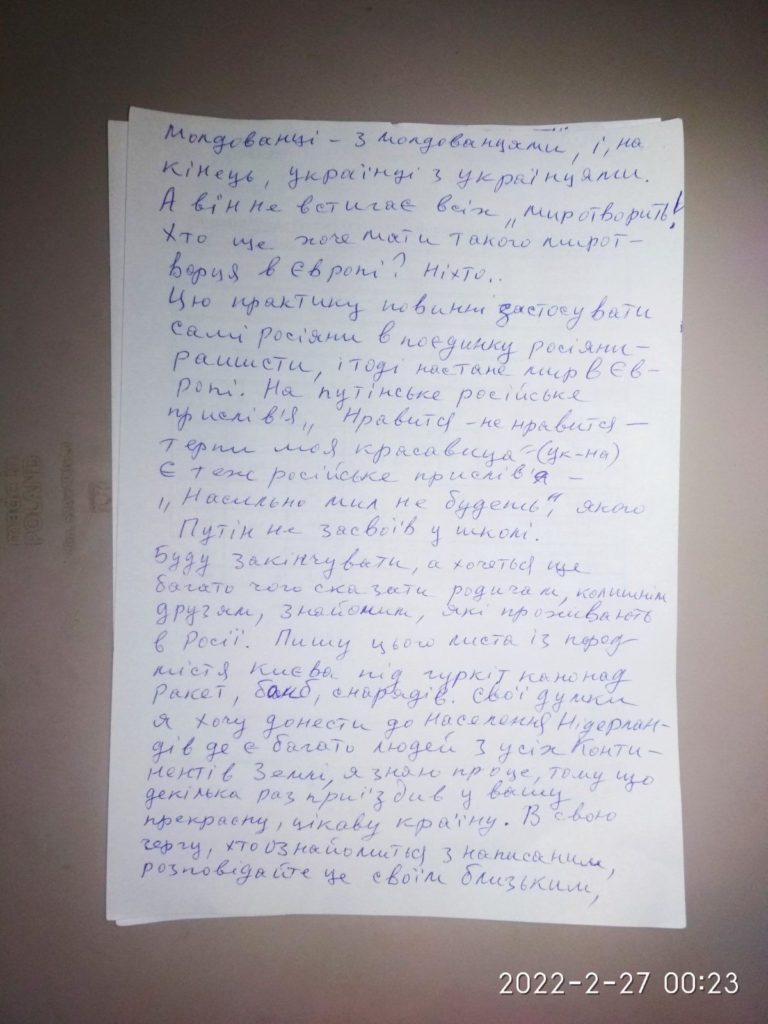 Молдованці - з молдованцями, і, на
кінець, українці з українцями.
А він не встигає всіх „миротворить"!
Хто ще хоче мати такого мирот-
ворця в Європі? Ніхто..
Цю практику повинні застосувати
самі росіяни в поєдинку росіяни-
рашисти, і тоді настане мир в Єв-
ропі. На путінське російське
прислів'я „Нравится - не нравится -
терпи моя красавица" - (ук-на)
Є теж російське прислів'я -
„Насильно мил не будеть", якого
Путін не засвоїв у школі.
Буду закінчувати, а хочеться ще
багато чого сказати родичам, колишнім
друзям, знайомим, які проживають
в Росії. Пишу цього листа із перед
містя Києва під гуркіт канонад
ракет, бомб, снарядів. Свої думки
я хочу донести до населення Нідерлан-
дів де є багато людей з усіх Конти-
нентів Землі, я знаю про це, тому що
декілька раз приїздив у вашу
прекрасну, цікаву країну. В свою
чергу, хто ознайомиться з написаним,
розповідайте це своїм близьким,
2022-2-27 00:23